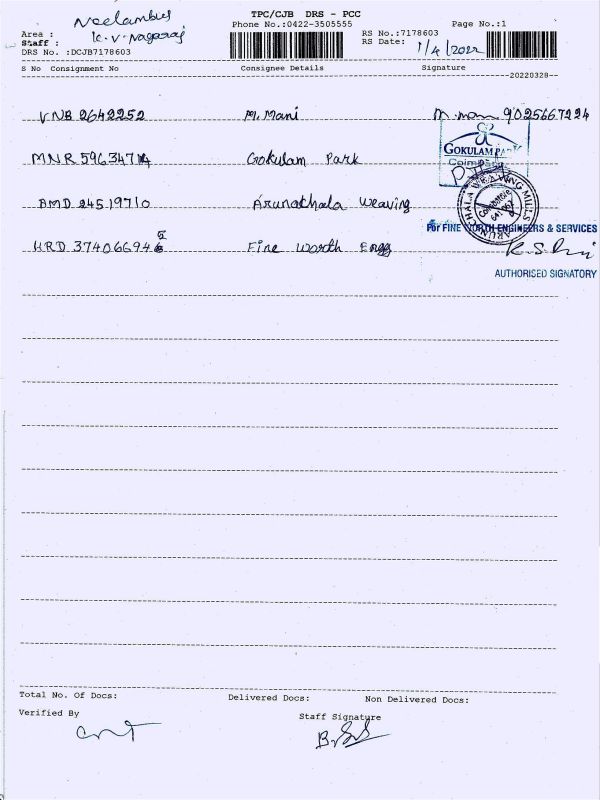 TPC/CJB DRS - PCC
Phone No.:0422-3505555
Page No.:1
Area : Neelambur
Staff : K.V. Nagaraj
DRS No. :DCJB7178603
RS No.:7178603
RS Date: 1/4/2022
S No Consignment No Consignee Details Signature
20220328
VNB 2642252 M. Mani M. mani 9025667224
MNR 59634714 Gokulam Park
GOKULAM PARK
Coimbatore
BMD 24519710 Arunachala Weaving
ARUNACHALA WEAVING MILLS
Coimbatore
HRD 374066946 5 Fine Worth Engg
For FINE WORTH ENGINEERS & SERVICES
AUTHORISED SIGNATORY
Total No. Of Docs: Delivered Docs: Non Delivered Docs:
Verified By
Staff Signature